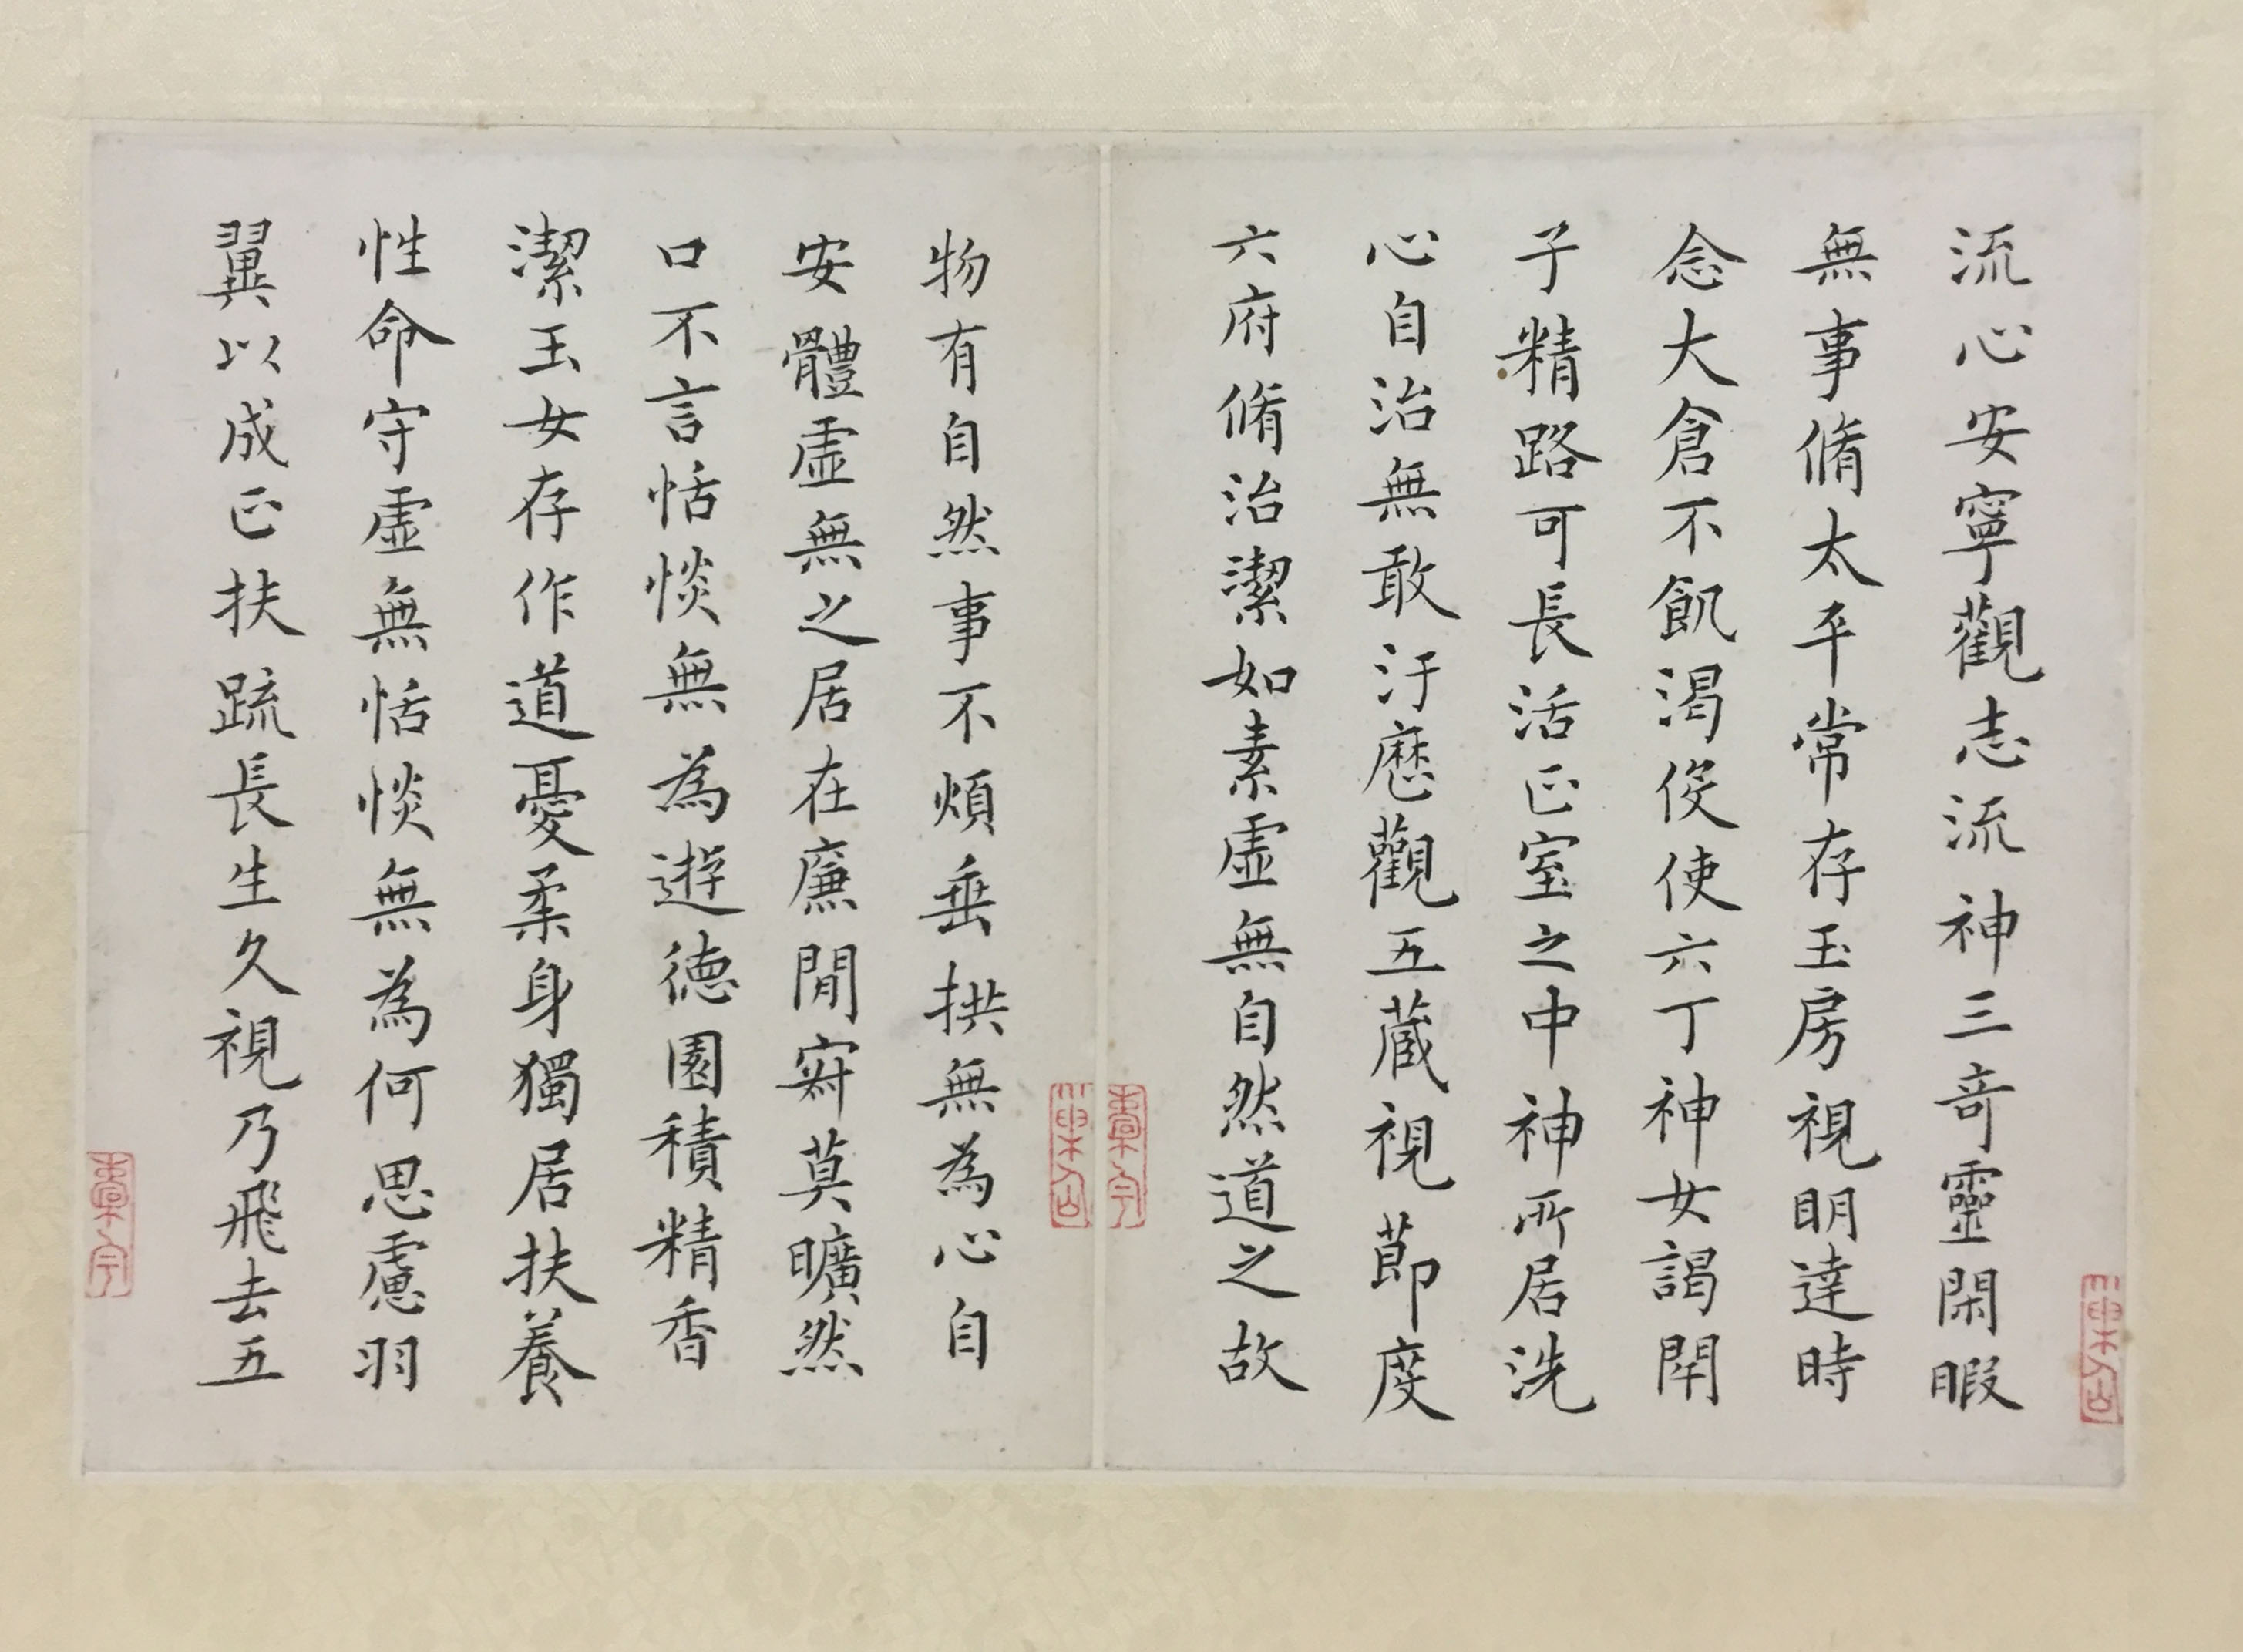 流心安寧觀志流神三奇靈閑暇
無事脩太平常存玉房視明達時
念大倉不飢渴伇使六丁神女謁閇
子精路可長活正室之中神所居洗
心自治無敢汙歷觀五藏視莭度
六府脩治潔如素虛無自然道之故
物有自然事不煩垂拱無為心自
安體虛無之居在廉閒寂莫曠然
口不言恬惔無為遊德園積精香
潔玉女存作道憂柔身獨居扶養
性命守虛無恬惔無為何思慮羽
翼以成正扶疏長生久視乃飛去五